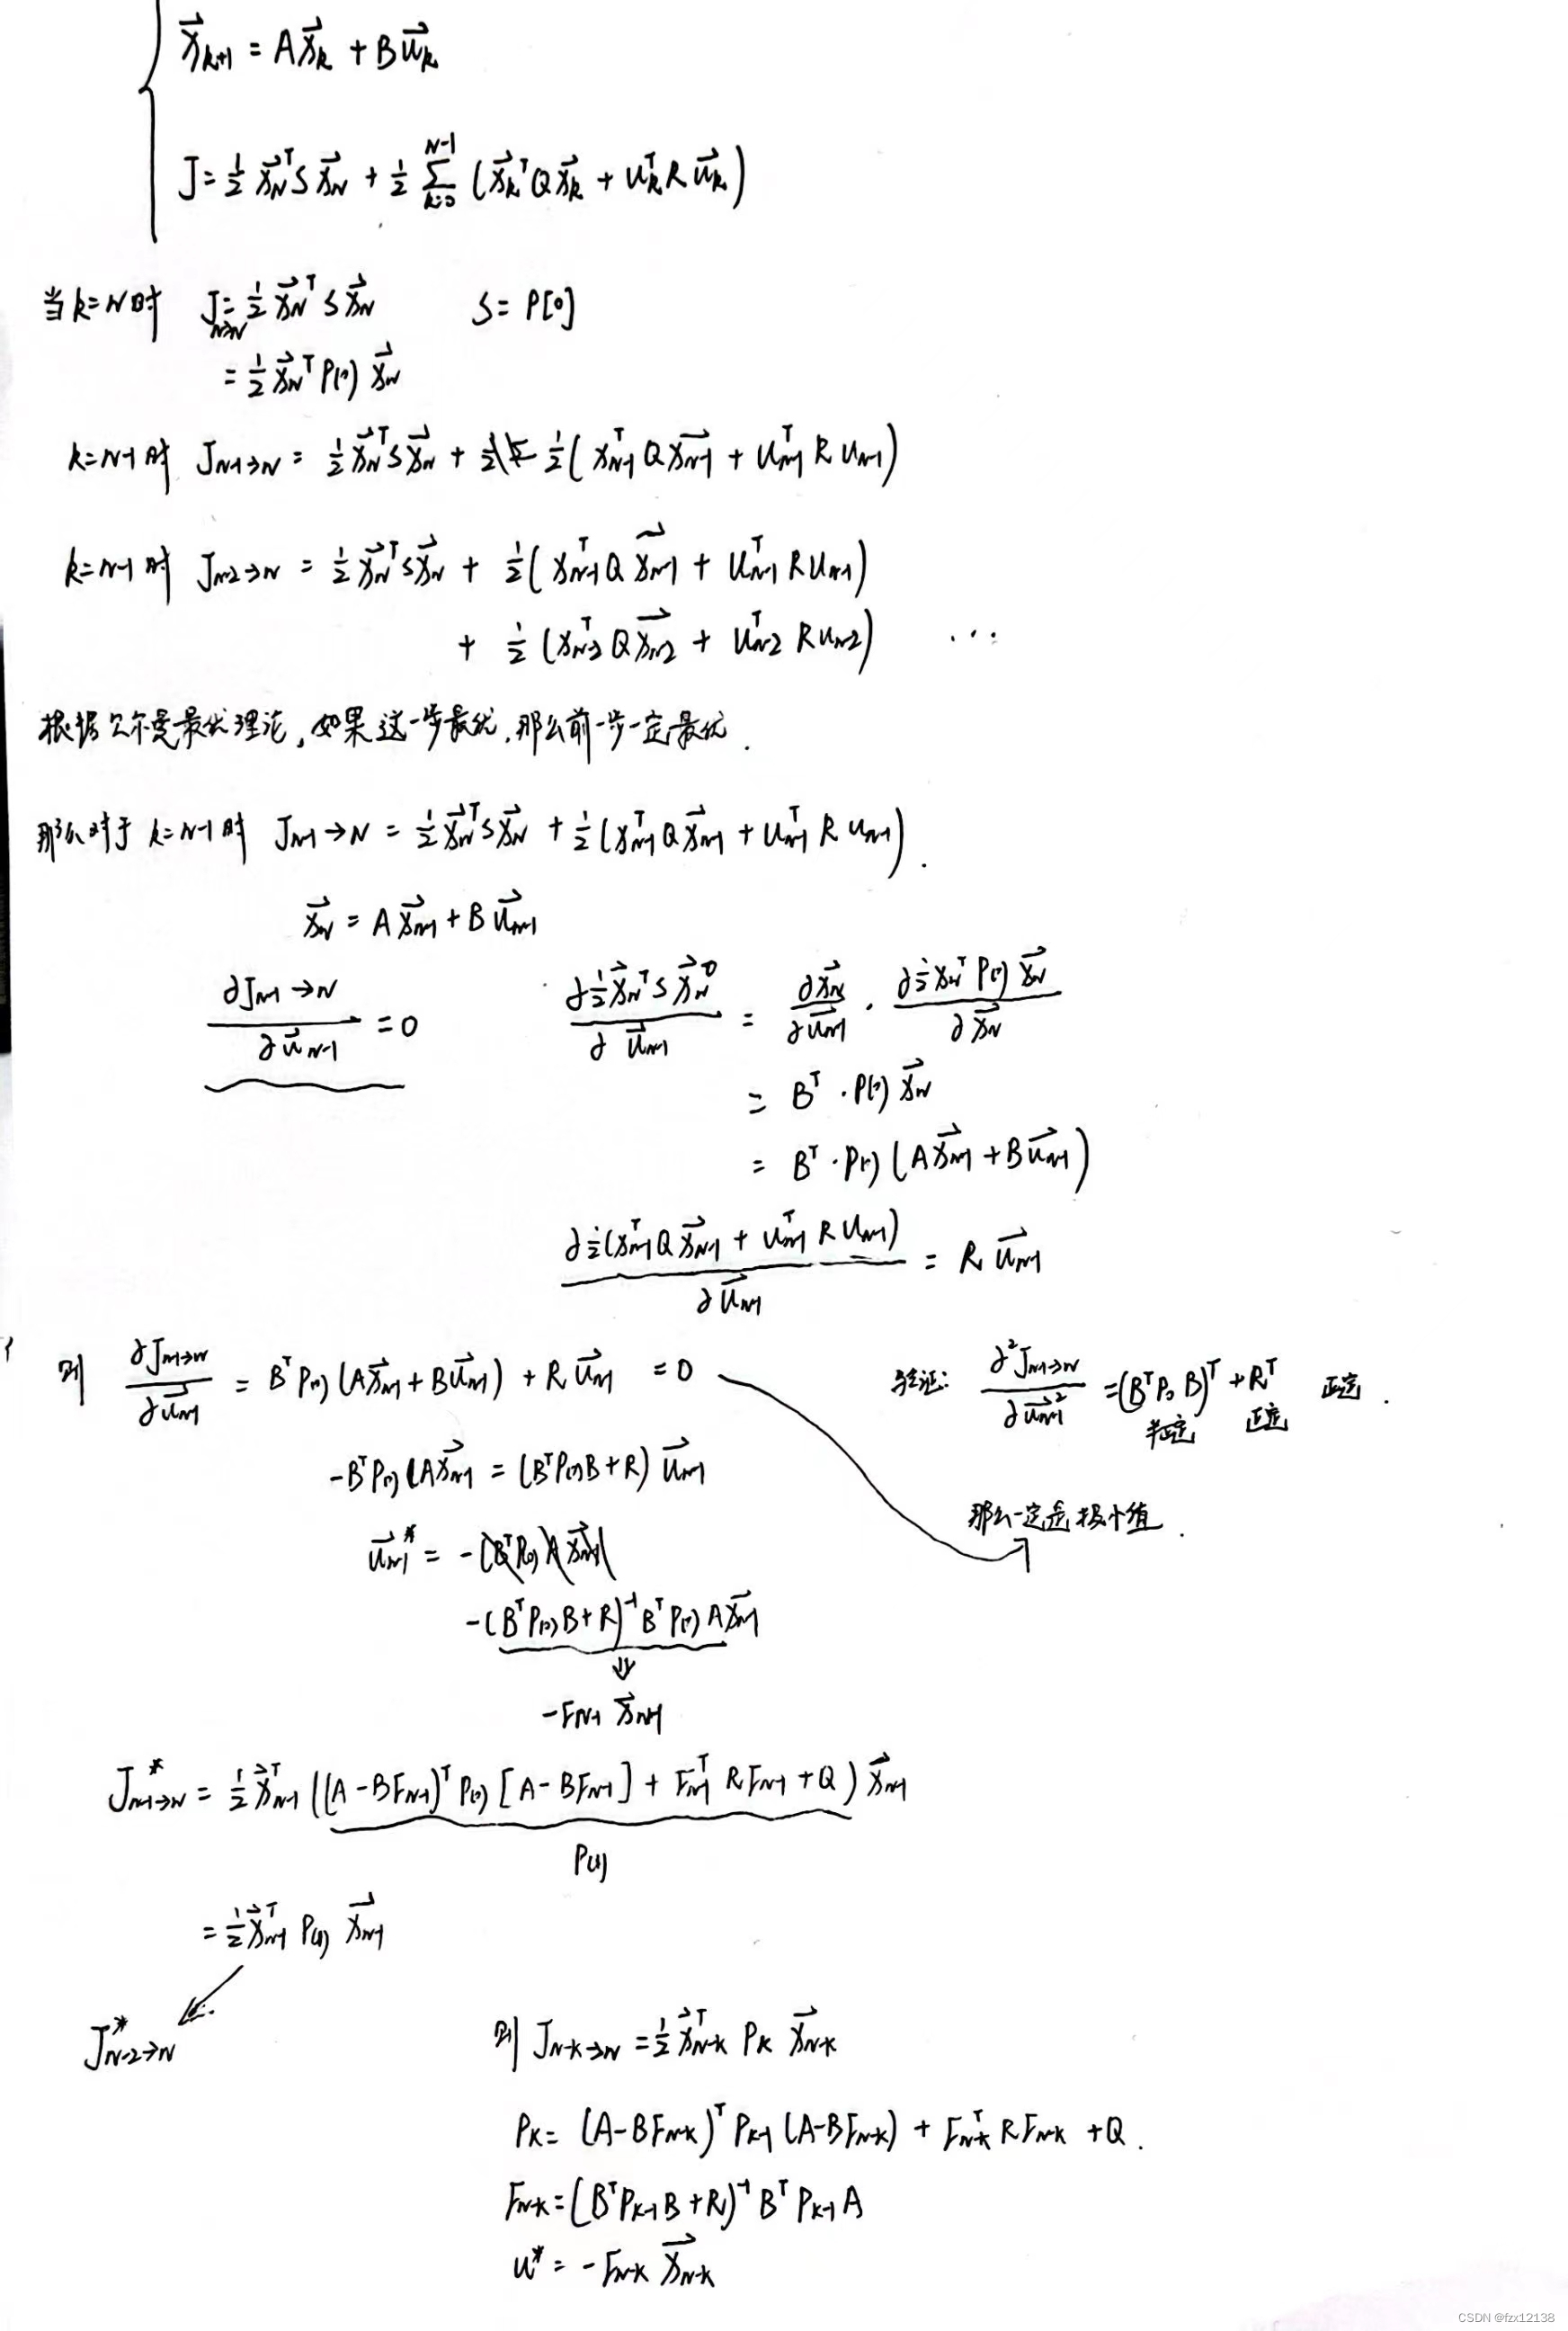 x⃗ₖ₊₁ = Ax⃗ₖ + Bu⃗ₖ
J = ½ x⃗_N^T S x⃗_N + ½ Σ_{k=0}^{N-1} (x⃗ₖ^T Q x⃗ₖ + uₖ^T R u⃗ₖ)
当 k=N 时 J_{N→N} = ½ x⃗_N^T S x⃗_N S = P[0]
= ½ x⃗_N^T P(0) x⃗_N
k=N-1 时 J_{N-1→N} = ½ x⃗_N^T S x⃗_N + ½ (x_{N-1}^T Q x⃗_{N-1} + u_{N-1}^T R u_{N-1})
k=N-1 时 J_{N-2→N} = ½ x⃗_N^T S x⃗_N + ½ (x_{N-1}^T Q x⃗_{N-1} + u_{N-1}^T R u_{N-1})
+ ½ (x_{N-2}^T Q x⃗_{N-2} + u_{N-2}^T R u_{N-2}) ...
根据贝尔曼最优理论, 如果这一步最优, 那么前一步一定最优.
那么对于 k=N-1 时 J_{N-1→N} = ½ x⃗_N^T S x⃗_N + ½ (x_{N-1}^T Q x⃗_{N-1} + u_{N-1}^T R u_{N-1}).
x⃗_N = A x⃗_{N-1} + B u⃗_{N-1}
∂J_{N-1→N} / ∂u⃗_{N-1} = 0 ∂½ x⃗_N^T S x⃗_N / ∂u⃗_{N-1} = ∂x⃗_N / ∂u⃗_{N-1} · ∂½ x_N^T P(0) x⃗_N / ∂x⃗_N
= B^T · P(0) x⃗_N
= B^T · P(0) (A x⃗_{N-1} + B u⃗_{N-1})
∂½ (x_{N-1}^T Q x⃗_{N-1} + u_{N-1}^T R u_{N-1}) / ∂u⃗_{N-1} = R u⃗_{N-1}
则 ∂J_{N-1→N} / ∂u⃗_{N-1} = B^T P(0) (A x⃗_{N-1} + B u⃗_{N-1}) + R u⃗_{N-1} = 0 验证: ∂²J_{N-1→N} / ∂u⃗_{N-1}² = (B^T P₀ B)^T + R^T 正定.
半正定 正定
-B^T P(0) (A x⃗_{N-1} = (B^T P(0) B + R) u⃗_{N-1}
那么一定是极小值.
u⃗_{N-1}* = -(B^T P(0) A x⃗_{N-1}
-(B^T P(0) B + R)^{-1} B^T P(0) A x⃗_{N-1}
⇓
-F_{N-1} x⃗_{N-1}
J*_{N-1→N} = ½ x⃗_{N-1}^T ((A - BF_{N-1})^T P(0) [A - BF_{N-1}] + F_{N-1}^T R F_{N-1} + Q) x⃗_{N-1}
P(1)
= ½ x⃗_{N-1}^T P(1) x⃗_{N-1}
J*_{N-2→N} 则 J_{N-K→N} = ½ x⃗_{N-K}^T P_K x⃗_{N-K}
P_K = (A - BF_{N-K})^T P_{K-1} (A - BF_{N-K}) + F_{N-K}^T R F_{N-K} + Q.
F_{N-K} = (B^T P_{K-1} B + R)^{-1} B^T P_{K-1} A
u* = -F_{N-K} x⃗_{N-K}
CSDN @fzx12138